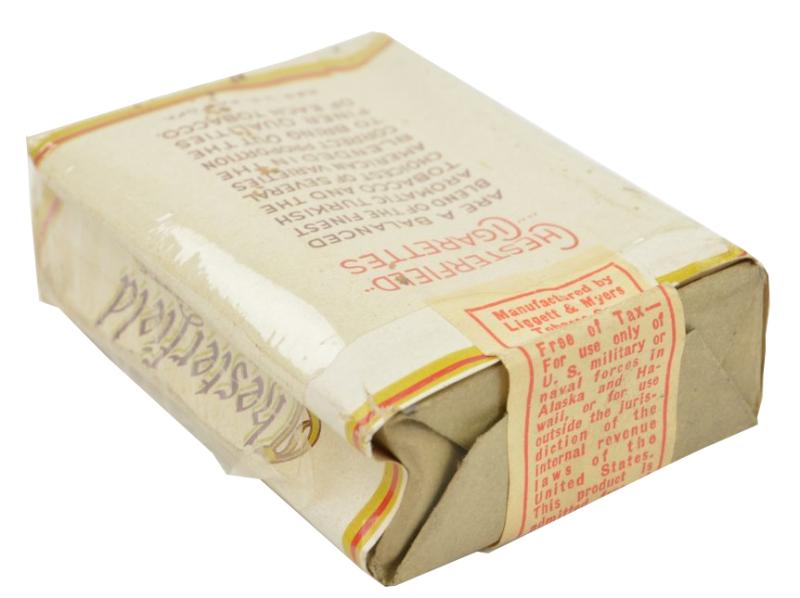 CHESTERFIELD"
CIGARETTES
ARE A BALANCED
BLEND OF THE FINEST
AROMATIC TURKISH
TOBACCO AND THE
CHOICEST OF SEVERAL
AMERICAN VARIETIES
BLENDED IN THE
CORRECT PROPORTION
TO BRING OUT THE
FINER QUALITIES
OF EACH TOBACCO.
Chesterfield
Manufactured by
Liggett & Myers
Free of Tax—
For use only of
U. S. military or
naval forces in
Alaska and Ha-
waii, or for use
outside the juris-
diction of the
internal revenue
laws of the
United States.
This product is
admitted